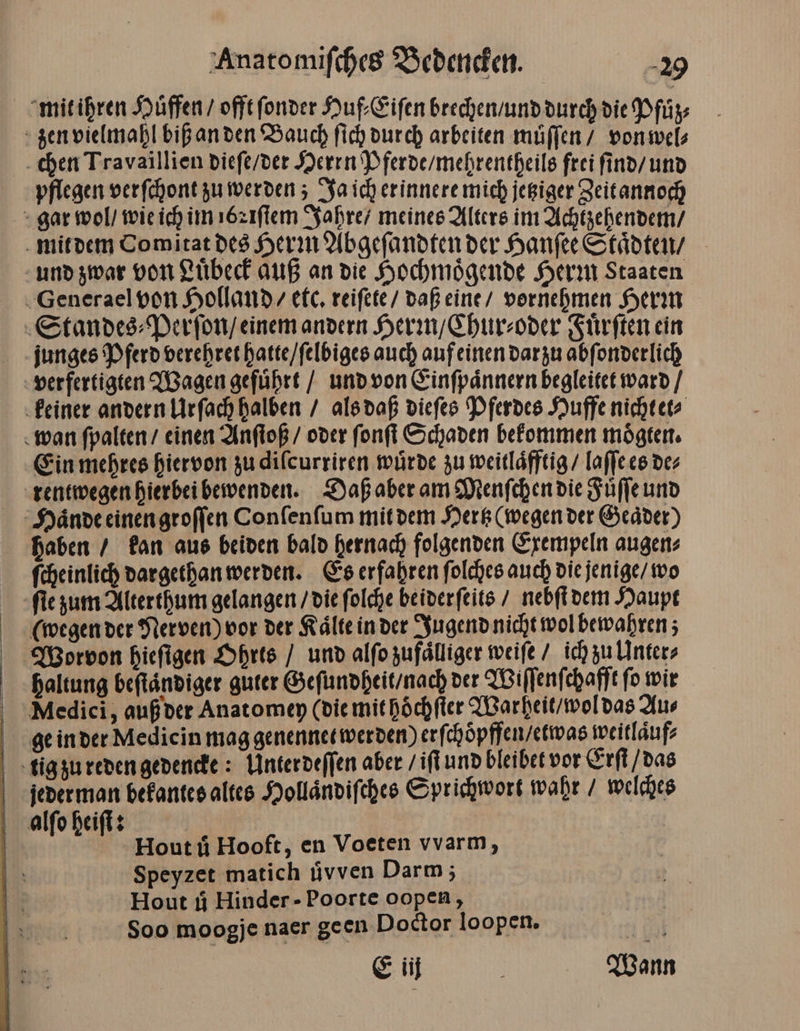 Anatomiſches Bedencken. 29
mit ihren Huͤffen / offt ſonder Huf-Eiſen brechen/und durch die Pfuͤtz⸗
zen vielmahl biß an den Bauch ſich durch arbeiten muͤſſen / von wel⸗
chen Travaillien dieſe/der Herrn Pferde/mehrentheils frei ſind/ und
pflegen verſchont zu werden; Ja ich erinnere mich jetziger Zeit annoch
gar wol/ wie ich im 1621ſtem Jahre/ meines Alters im Achtzehendem/
mit dem Comitat des Herꝛn Abgeſandten der Hanſee Staͤdten/
und zwar von Luͤbeck auß an die Hochmoͤgende Herꝛn Staaten
Generael von Holland / etc. reiſete / daß eine / vornehmen Herꝛn
Standes-Perſon/ einem andern Herꝛn/Chur-oder Fuͤrſten ein
junges Pferd verehret hatte/ſelbiges auch auf einen darzu abſonderlich
verfertigten Wagen gefuͤhrt / und von Einſpaͤnnern begleitet ward /
keiner andern Urſach halben / als daß dieſes Pferdes Huffe nicht et⸗
wan ſpalten / einen Anſtoß / oder ſonſt Schaden bekommen moͤgten.
Ein mehres hiervon zu diſcurriren wuͤrde zu weitlaͤfftig / laſſe es de⸗
rentwegen hierbei bewenden. Daß aber am Menſchen die Fuͤſſe und
Haͤnde einen groſſen Conſenſum mit dem Hertz (wegen der Geaͤder)
haben / kan aus beiden bald hernach folgenden Exempeln augen⸗
ſcheinlich dargethan werden. Es erfahren ſolches auch die jenige/ wo
ſie zum Alterthum gelangen / die ſolche beiderſeits / nebſt dem Haupt
(wegen der Nerven) vor der Kaͤlte in der Jugend nicht wol bewahren;
Worvon hieſigen Ohrts / und alſo zufaͤlliger weiſe / ich zu Unter⸗
haltung beſtaͤndiger guter Geſundheit/nach der Wiſſenſchafft ſo wir
Medici, auß der Anatomey (die mit hoͤchſter Warheit/wol das Au⸗
ge in der Medicin mag genennet werden) erſchoͤpffen/etwas weitlaͤuf⸗
tig zu reden gedencke: Unterdeſſen aber / iſt und bleibet vor Erſt / das
jederman bekantes altes Hollaͤndiſches Sprichwort wahr / welches
alſo heiſt:
Hout uͤ Hooft, en Voeten vvarm,
Speyzet matich uͤvven Darm;
Hout uͤ Hinder-Poorte oopen,
Soo moogje naer geen Doctor loopen.
E iij Wann